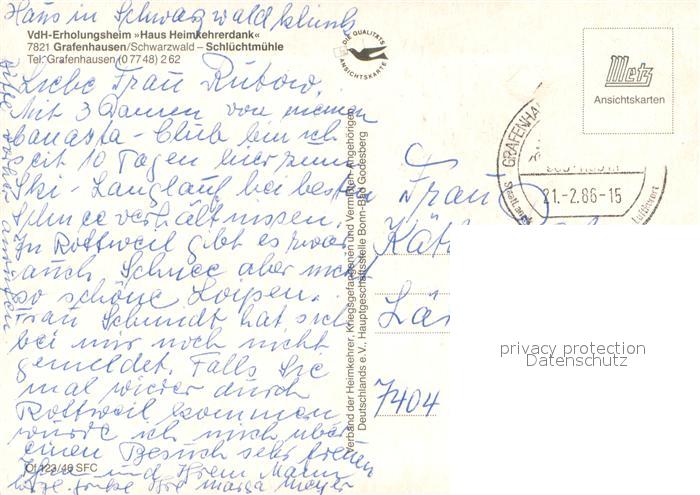 Haus in Schwarzwaldklinik
VdH-Erholungsheim »Haus Heimkehrerdank«
7821 Grafenhausen/Schwarzwald – Schlüchtmühle
Tel. Grafenhausen (07748) 262
DIE QUALITÄTS
ANSICHTSKARTE
Metz
Ansichtskarten
GRAFENHAU
21.-2.86-15
Liebe Frau Rubow,
Mit 3 Damen von meinem
Canasta-Club bin ich
seit 10 Tagen hier zum
Ski-Langlauf bei besten
Schneeverhältnissen.
In Rottweil gibt es zwar
auch Schnee aber nicht
so schöne Loipen.
Frau Schmidt hat sich
bei mir noch nicht
gemeldet. Falls Sie
mal wieder durch
Rottweil kommen
würde ich mich über
einen Besuch sehr freuen
Ihnen und Ihrem Mann
herzl. Grüße Ihre Marga Mayer
bitte vorher anrufen
Verband der Heimkehrer, Kriegsgefangenen und Vermißten-Angehörigen
Deutschlands e.V., Hauptgeschäftsstelle Bonn-Bad Godesberg
Of 123/46 SFC
Frau
Kät
Lär
7404
privacy protection
Datenschutz